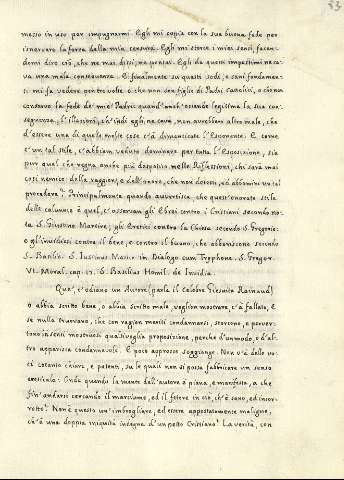 53
messo in uso per impugnarmi. Egli mi copia con la sua buona fede per
isnervare la forza della mia censura. Egli mi storce i miei sensi, facen-
domi dire ciò, che ne mai dissi, ne pensai. Egli da questi impastini ne ca-
va una mala conseguenza. E finalmente su questi sodi, e sani fondamen-
ti mi fa vedere per tre volte o che non sia figlio di Padri Cattolici, o che non
conservo la fede de' miei Padri: quand'anch'essendo legitima la sua con-
seguenza, l'illazioni, ch'indi egli ne cava, non avrebbero altro male, che
d'essere una di quelle molte cose ch'à dimenticate l'Esponente. E come
e' un tal stile, c'abbiam veduto dominare per tutta l'Esposizione, sia
pur quel che regna anche più dispotico nelle Riflessioni, chi sarà mai
così nemico della raggione, e dell'onore, che non detesti, ed abbomini un tal
procedere? Principalmente quando avvertisca, che quest'onorato stile
delle calunnie è quel, c'osservan gli Ebrei contro i Cristiani secondo no-
ta S. Giustino Martire, gli Eretici contro la Chiesa secondo S. Gregorio
e gl'invidiosi contro il bene, e contro il buono, che abborriscono secondo
S. Basilio. S. Iustinus Martir in Dialogo cum Tryphone. S. Gregor.
VI. Moral. cap. 17. S. Basilius Homil. de Invidia.
Que', c'odiano un Autore (parla il celebre Giesuita Rainaud)
o abbia scritto bene, o abbia scritto male, vogliono mostrare, c'à fallato, E
se nulla truovano, che con ragion meriti condannarsi, storcono, e perver-
tono in sensi mostruosi qualsivoglia proposizione, perchè d'un modo, o d'al-
tro apparisca condannevole. E poco appresso soggionge. Non v'à delle vo-
ci cotanto chiare, e patenti, su le quali non si possa fabbricare un senso
ereticale. Onde quando la mente dell'autore è piana, e manifesta, a che
fin'andarsi cercando il marciume, ed il fetore in ciò, ch'è sano, ed incor-
rotto? Non è questo un'imbrogliare, ed essere appostatamente maligno,
ch'è una doppia iniquità indegna d'un petto Cristiano? La verità, con